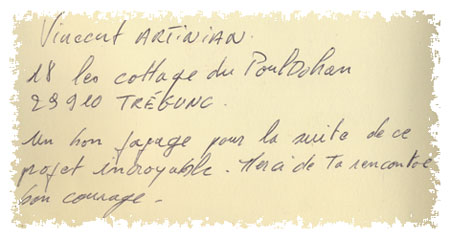 Vincent ARTINIAN.
18 les cottage du Pouldohan
29910 TRÉGUNC.
Un bon présage pour la suite de ce
projet incroyable. Merci de Ta rencontre
bon courage.